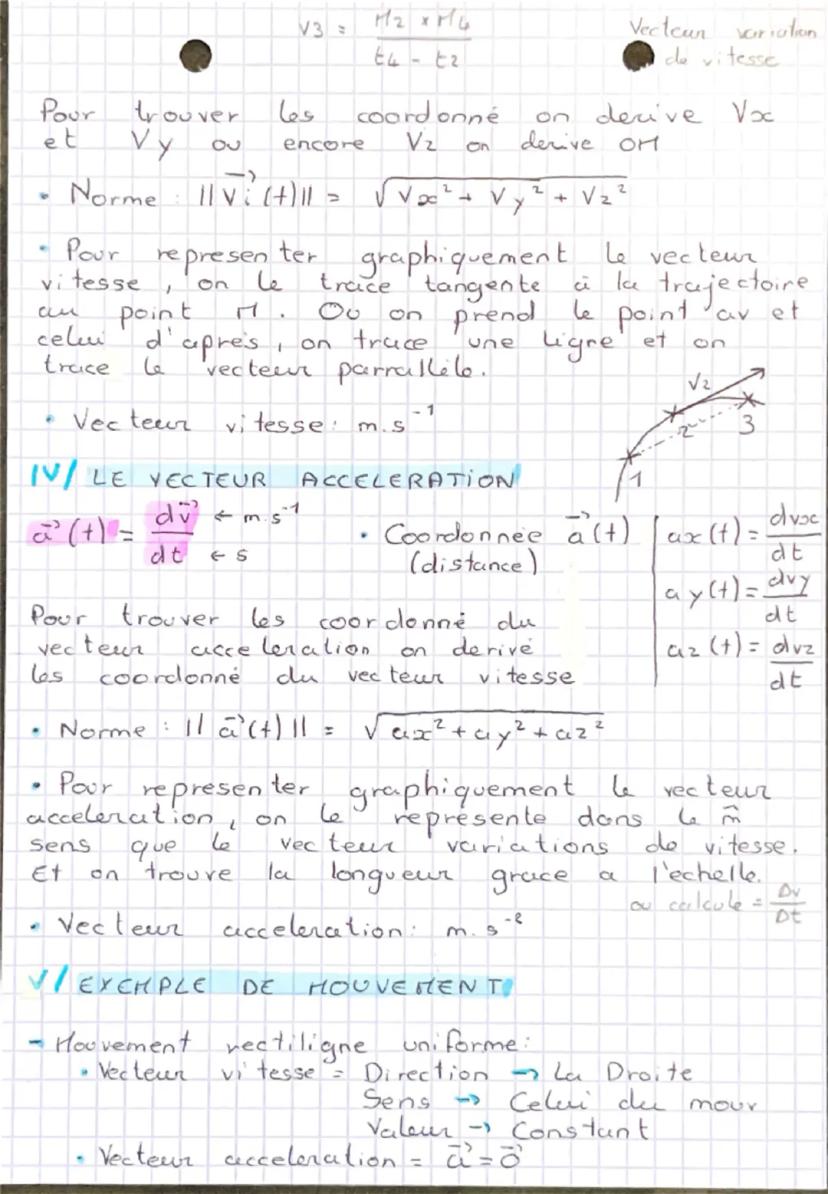 V3 = M2 x M4 / t4 - t2
Vecteur variation
de vitesse
Pour trouver les coordonné on derive Vx
et Vy ou encore Vz on derive OM
• Norme : ||V⃗i(t)|| = √Vx² + Vy² + Vz²
• Pour representer graphiquement le vecteur
vitesse, on le trace tangente à la trajectoire
au point M. Ou on prend le point av et
celui d'après, on trace une ligne et on
trace le vecteur parrallèle.
• Vecteur vitesse : m.s⁻¹
V2
1 2 3
IV/ LE VECTEUR ACCELERATION
a⃗(t) = dv⃗ / dt ← m.s⁻¹ ← s
• Coordonnée a⃗(t)
(distance)
ax(t) = dvx / dt
ay(t) = dvy / dt
az(t) = dvz / dt
Pour trouver les coordonné du
vecteur acceleration on derive
les coordonné du vecteur vitesse
• Norme : || a⃗(t) || = √ax² + ay² + az²
• Pour representer graphiquement le vecteur
acceleration, on le représente dans le m̂
sens que le vecteur variations de vitesse.
Et on trouve la longueur grace a l'echelle.
ou calcule = Δv / Δt
• Vecteur acceleration : m.s⁻²
V/ EXEMPLE DE MOUVEMENT
- Mouvement rectiligne uniforme :
• Vecteur vitesse = Direction → La Droite
Sens → Celui du mouv
Valeur → Constant
• Vecteur acceleration = a⃗ = 0⃗